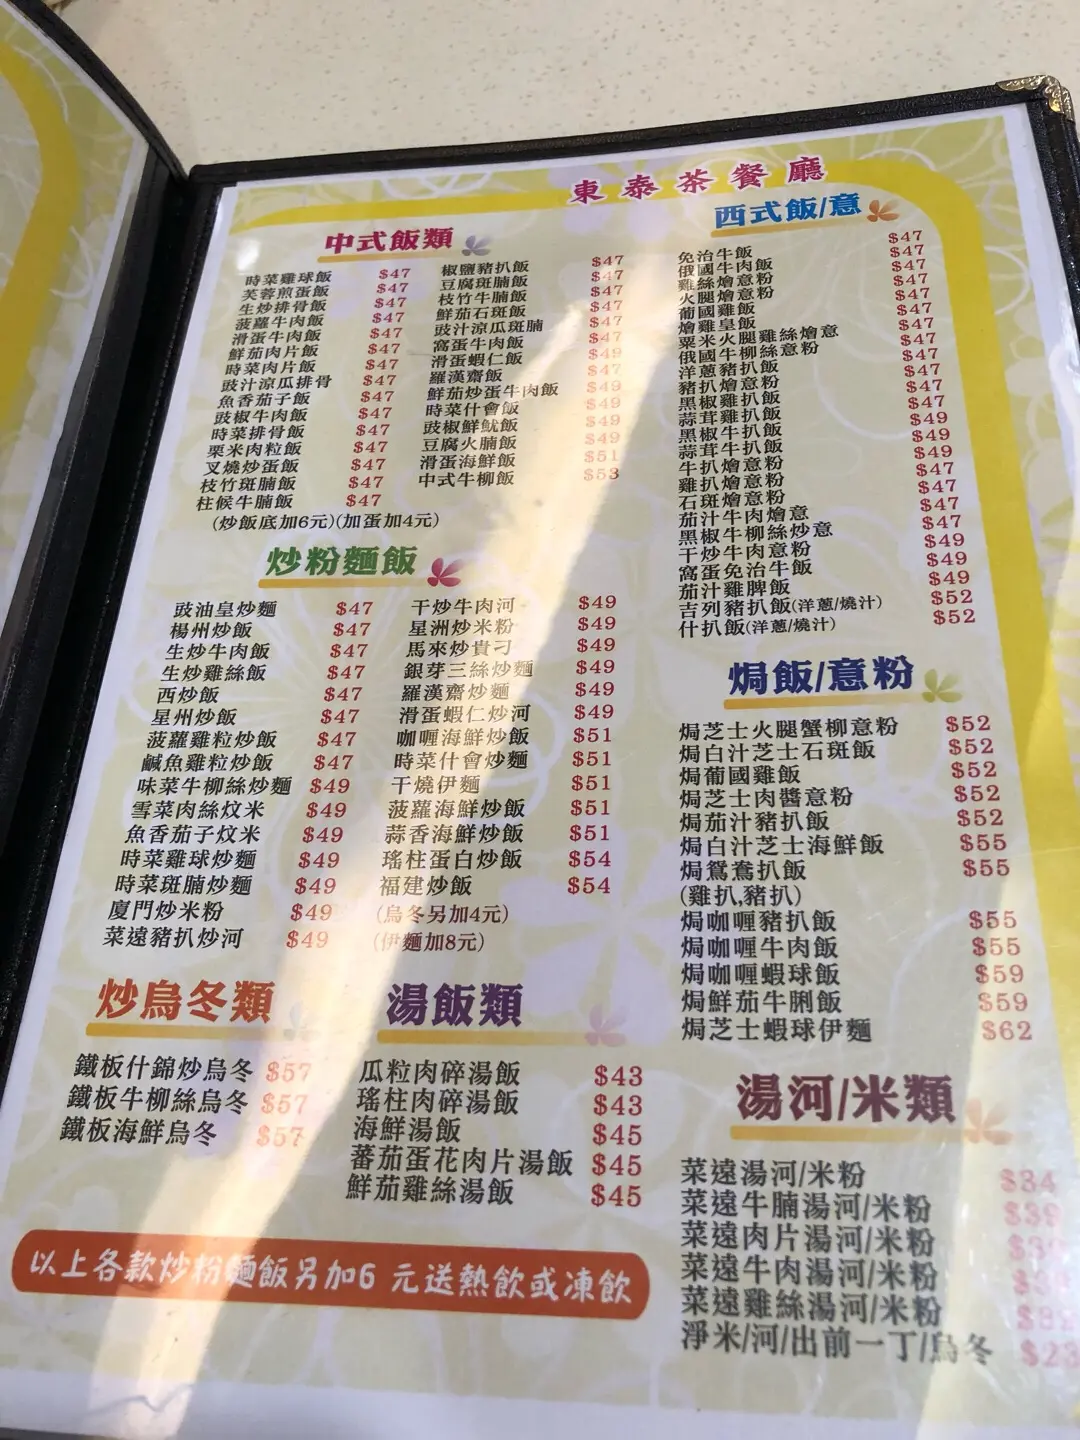 東泰茶餐廳
中式飯類
時菜雞球飯 $47
芙蓉煎蛋飯 $47
生炒排骨飯 $47
菠蘿牛肉飯 $47
滑蛋牛肉飯 $47
鮮茄肉片飯 $47
時菜肉片飯 $47
豉汁涼瓜排骨 $47
魚香茄子飯 $47
豉椒牛肉飯 $47
時菜排骨飯 $47
栗米肉粒飯 $47
叉燒炒蛋飯 $47
枝竹斑腩飯 $47
柱候牛腩飯 $47
(炒飯底加6元)(加蛋加4元)
椒鹽豬扒飯 $47
豆腐斑腩飯 $47
枝竹牛腩飯 $47
鮮茄石斑飯 $47
豉汁涼瓜斑腩 $47
窩蛋牛肉飯 $47
滑蛋蝦仁飯 $49
羅漢齋飯 $47
鮮茄炒蛋牛肉飯 $49
時菜什會飯 $49
豉椒鮮魷飯 $49
豆腐火腩飯 $49
滑蛋海鮮飯 $51
中式牛柳飯 $53
西式飯/意
免治牛飯 $47
俄國牛肉飯 $47
雞絲燴意粉 $47
火腿燴意粉 $47
葡國雞飯 $47
燴雞皇飯 $47
粟米火腿雞絲燴意 $47
俄國牛柳絲意粉 $47
洋蔥豬扒飯 $47
豬扒燴意粉 $47
黑椒雞扒飯 $47
蒜茸雞扒飯 $47
黑椒牛扒飯 $49
蒜茸牛扒飯 $49
牛扒燴意粉 $49
雞扒燴意粉 $47
石斑燴意粉 $47
茄汁牛肉燴意 $47
黑椒牛柳絲炒意 $47
干炒牛肉意粉 $49
窩蛋免治牛飯 $49
茄汁雞脾飯 $49
吉列豬扒飯(洋蔥/燒汁) $52
什扒飯(洋蔥/燒汁) $52
炒粉麵飯
豉油皇炒麵 $47
楊州炒飯 $47
生炒牛肉飯 $47
生炒雞絲飯 $47
西炒飯 $47
星州炒飯 $47
菠蘿雞粒炒飯 $47
鹹魚雞粒炒飯 $47
味菜牛柳絲炒麵 $49
雪菜肉絲炆米 $49
魚香茄子炆米 $49
時菜雞球炒麵 $49
時菜斑腩炒麵 $49
廈門炒米粉 $49
菜遠豬扒炒河 $49
干炒牛肉河 $49
星洲炒米粉 $49
馬來炒貴刁 $49
銀芽三絲炒麵 $49
羅漢齋炒麵 $49
滑蛋蝦仁炒河 $49
咖喱海鮮炒飯 $51
時菜什會炒麵 $51
干燒伊麵 $51
菠蘿海鮮炒飯 $51
蒜香海鮮炒飯 $51
瑤柱蛋白炒飯 $54
福建炒飯 $54
(烏冬另加4元)
(伊麵加8元)
焗飯/意粉
焗芝士火腿蟹柳意粉 $52
焗白汁芝士石斑飯 $52
焗葡國雞飯 $52
焗芝士肉醬意粉 $52
焗茄汁豬扒飯 $52
焗白汁芝士海鮮飯 $55
焗鴛鴦扒飯 $55
(雞扒,豬扒)
焗咖喱豬扒飯 $55
焗咖喱牛肉飯 $55
焗咖喱蝦球飯 $59
焗鮮茄牛脷飯 $59
焗芝士蝦球伊麵 $62
炒烏冬類
鐵板什錦炒烏冬 $57
鐵板牛柳絲烏冬 $57
鐵板海鮮烏冬 $57
湯飯類
瓜粒肉碎湯飯 $43
瑤柱肉碎湯飯 $43
海鮮湯飯 $45
蕃茄蛋花肉片湯飯 $45
鮮茄雞絲湯飯 $45
湯河/米類
菜遠湯河/米粉 $34
菜遠牛腩湯河/米粉 $39
菜遠肉片湯河/米粉
菜遠牛肉湯河/米粉
菜遠雞絲湯河/米粉
淨米/河/出前一丁/烏冬 $23
以上各款炒粉麵飯另加6 元送熱飲或凍飲